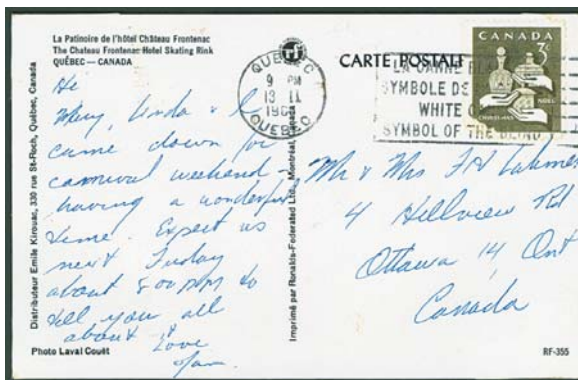 La Patinoire de l'hôtel Château Frontenac
The Chateau Frontenac Hotel Skating Rink
QUÉBEC — CANADA
Hi
Mary, Linda & I
came down for
carnival weekend -
having a wonderful
time. Expect us
next Tuesday
about 8:00 PM to
tell you all
about it
Love
Photo Laval Couët
Distributeur Emile Kirouac, 330 rue St-Roch, Québec, Canada
Imprimé par Ronalds-Federated Ltd., Montréal, Canada
CARTE POSTALE
QUEBEC
9 PM
13 II
QUEBEC
LA CANNE
SYMBOLE DE
WHITE
SYMBOL OF THE BLIND
CANADA
3c
NOËL
CHRISTMAS
Mr & Mrs F H
4 Hillview Rd
Ottawa 14 Ont
Canada
RF-355